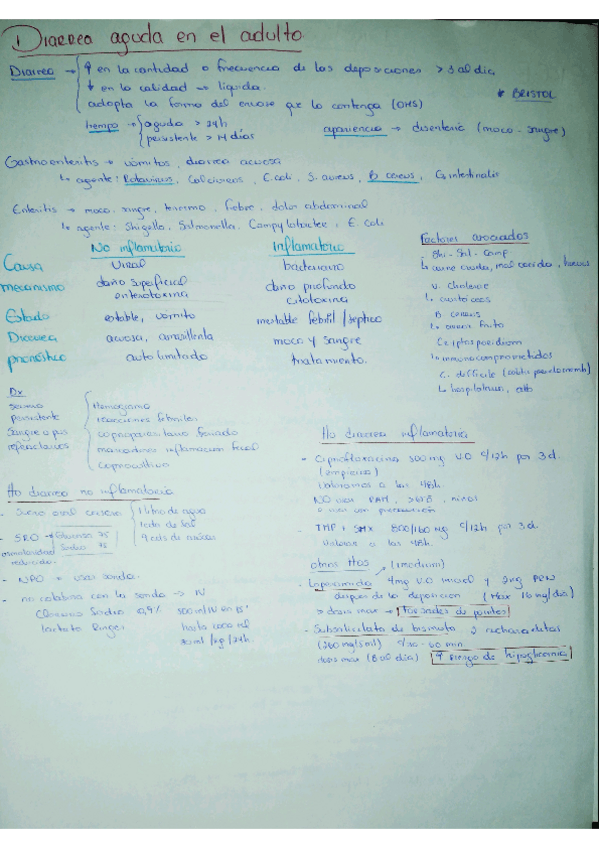 Diarrea aguda en el adulto
Diarrea → ↑ en la cantidad o frecuencia de las deposiciones > 3 al dia
↓ en la calidad → liquida.
adopta la forma del envase que lo contenga (OMS)
* BRISTOL
tiempo → aguda > 24h
persistente > 14 días
apariencia → disenteria (moco - sangre)
Gastroenteritis → vómitos, diarrea acuosa
↳ agente: Rotavirus, Calicivirus, E. coli, S. aureus, B cereus,
Enteritis → moco, sangre, tenesmo, fiebre, dolor abdominal
↳ agente: Shigella, Salmonella, Campylobacter, E. coli
No inflamatorio
Inflamatorio
Causa
Viral
bacteriano
mecanismo
daño superficial
enterotoxina
daño profundo
citotoxina
Estado
estable, vomito
inestable febril / septico
Diarrea
acuosa, amarillenta
moco y sangre
pronóstico
auto limitado
tratamiento.
Factores asociados
Shi - Sal - Camp
↳ carne cruda, mal cocida, huevos
V. Cholerae
B. cereus
↳ arroz frito
Criptosporidium
↳ inmunocomprometidos
C. difficile
↳ hospitalismo, atb
Dx
severo
persistente
sangre o pus
Hemograma
reacciones febriles
coproparasitario seriado
marcadores inflamacion fecal
coprocultivo
tto diarrea no inflamatoria
- Suero oral casero
1 litro de agua
1 cda de sal
- SRO → Glucosa 75
Sodio 75
osmolaridad
reducida.
- NPO → usar sonda.
- no colabora con la sonda → IV
Cloruro Sodio 0,9%
500 ml IV en 15'
lactato Ringer
hasta 1000 ml
tto diarrea inflamatoria
- Ciprofloxacina 500mg V.O c/12h por 3d.
(empirico)
Valoramos a las 48h.
- TMP + SMX 800/160 mg c/12h por 3 d.
Valorar a las 48h.
otros ttos
- Loperamida 4mg V.O inicial y 2mg PRN
después de la deposicion (Max 16 mg/dia)
> dosis max → Torsades de pointes
- Subsalicilato de bismuto 2 cucharaditas
c/30 - 60 min.
dosis max (8 al dia) ↑ riesgo de hipoglicemia